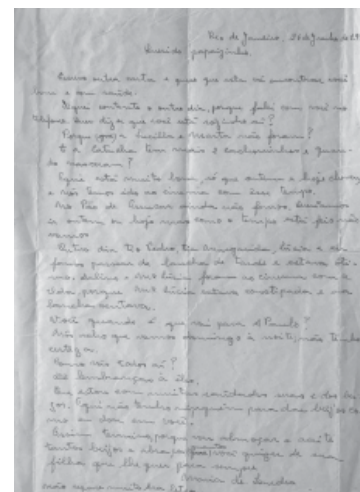 Rio de Janeiro, 26 de Junho de 19
Querido papaizinho.
Escrevo outra carta e quero que esta vá encontrar você
bem e com saúde.
Fiquei contente o outro dia, porque falei com você no
telefone. Mas diga que você está sozinho aí?
Porque (que) a Lucilla e Marita não foram?
E a tem mais e cachorrinhos e quan-
do nasceram?
Aqui está muito bom, só que ontem e hoje choveu
e não temos ido ao cinema com esse tempo.
No Pão de Assucar ainda não fomos,
ir ontem ou hoje mas como o tempo está feio não
vamos
Outro dia, tio Pedro, tia, Lúcia e eu
fomos passear de lancha de tarde e estava óti-
mo. e Ana Lúcia foram ao cinema com a
Vida, porque Ana Lúcia estava constipada e na
lancha ventava.
Você quando é que vai para S Paulo?
Nós acho que vamos domingo à noite, não tenho
certeza.
Como vão todos aí?
Dê lembranças à
Eu estou com muitas saudades suas e dos bei-
jos. Aqui não tenho ninguém para dar beijos co-
mo eu dou em você.
Assim termino, porque vou almoçar e aceite
tantos beijos e abraços você quizer de sua
filha que lhe quer para sempre
não